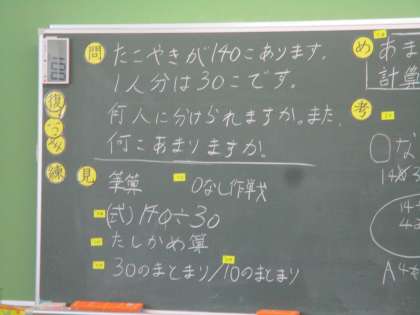 問 たこやきが140こあります。
1人分は30こです。
何人に分けられますか。また、
何こあまりますか!
復
練
見 筆算 0なし作戦
(式)140÷30
たしかめ算
30のまとまり/10のまとまり
め あま
計算
考
0な
14
A4